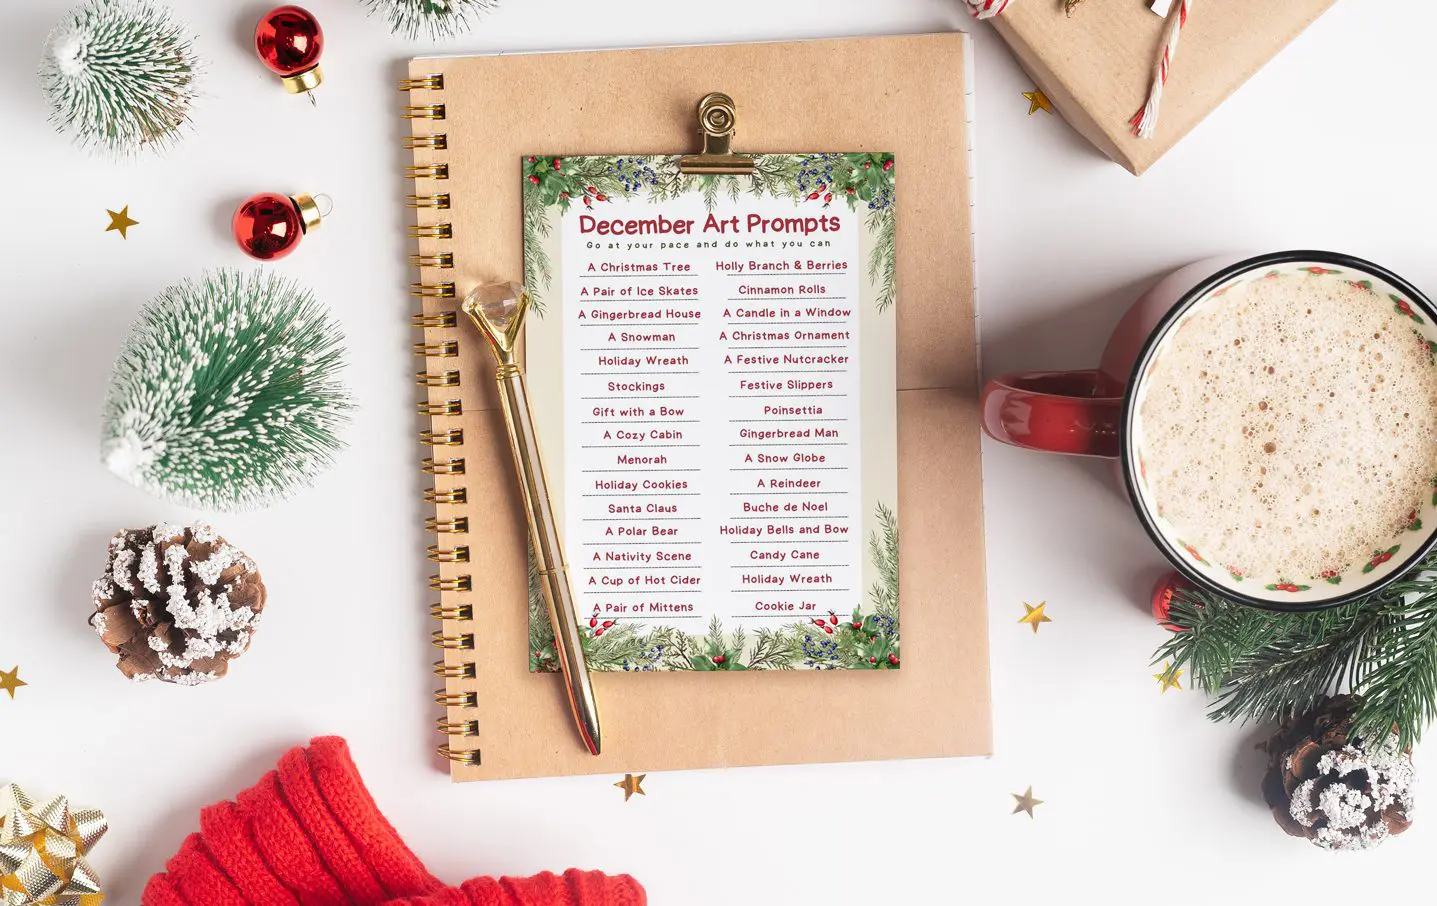 December Art Prompts
Go at your pace and do what you can
A Christmas Tree
A Pair of Ice Skates
A Gingerbread House
A Snowman
Holiday Wreath
Stockings
Gift with a Bow
A Cozy Cabin
Menorah
Holiday Cookies
Santa Claus
A Polar Bear
A Nativity Scene
A Cup of Hot Cider
A Pair of Mittens
Holly Branch & Berries
Cinnamon Rolls
A Candle in a Window
A Christmas Ornament
A Festive Nutcracker
Festive Slippers
Poinsettia
Gingerbread Man
A Snow Globe
A Reindeer
Buche de Noel
Holiday Bells and Bow
Candy Cane
Holiday Wreath
Cookie Jar